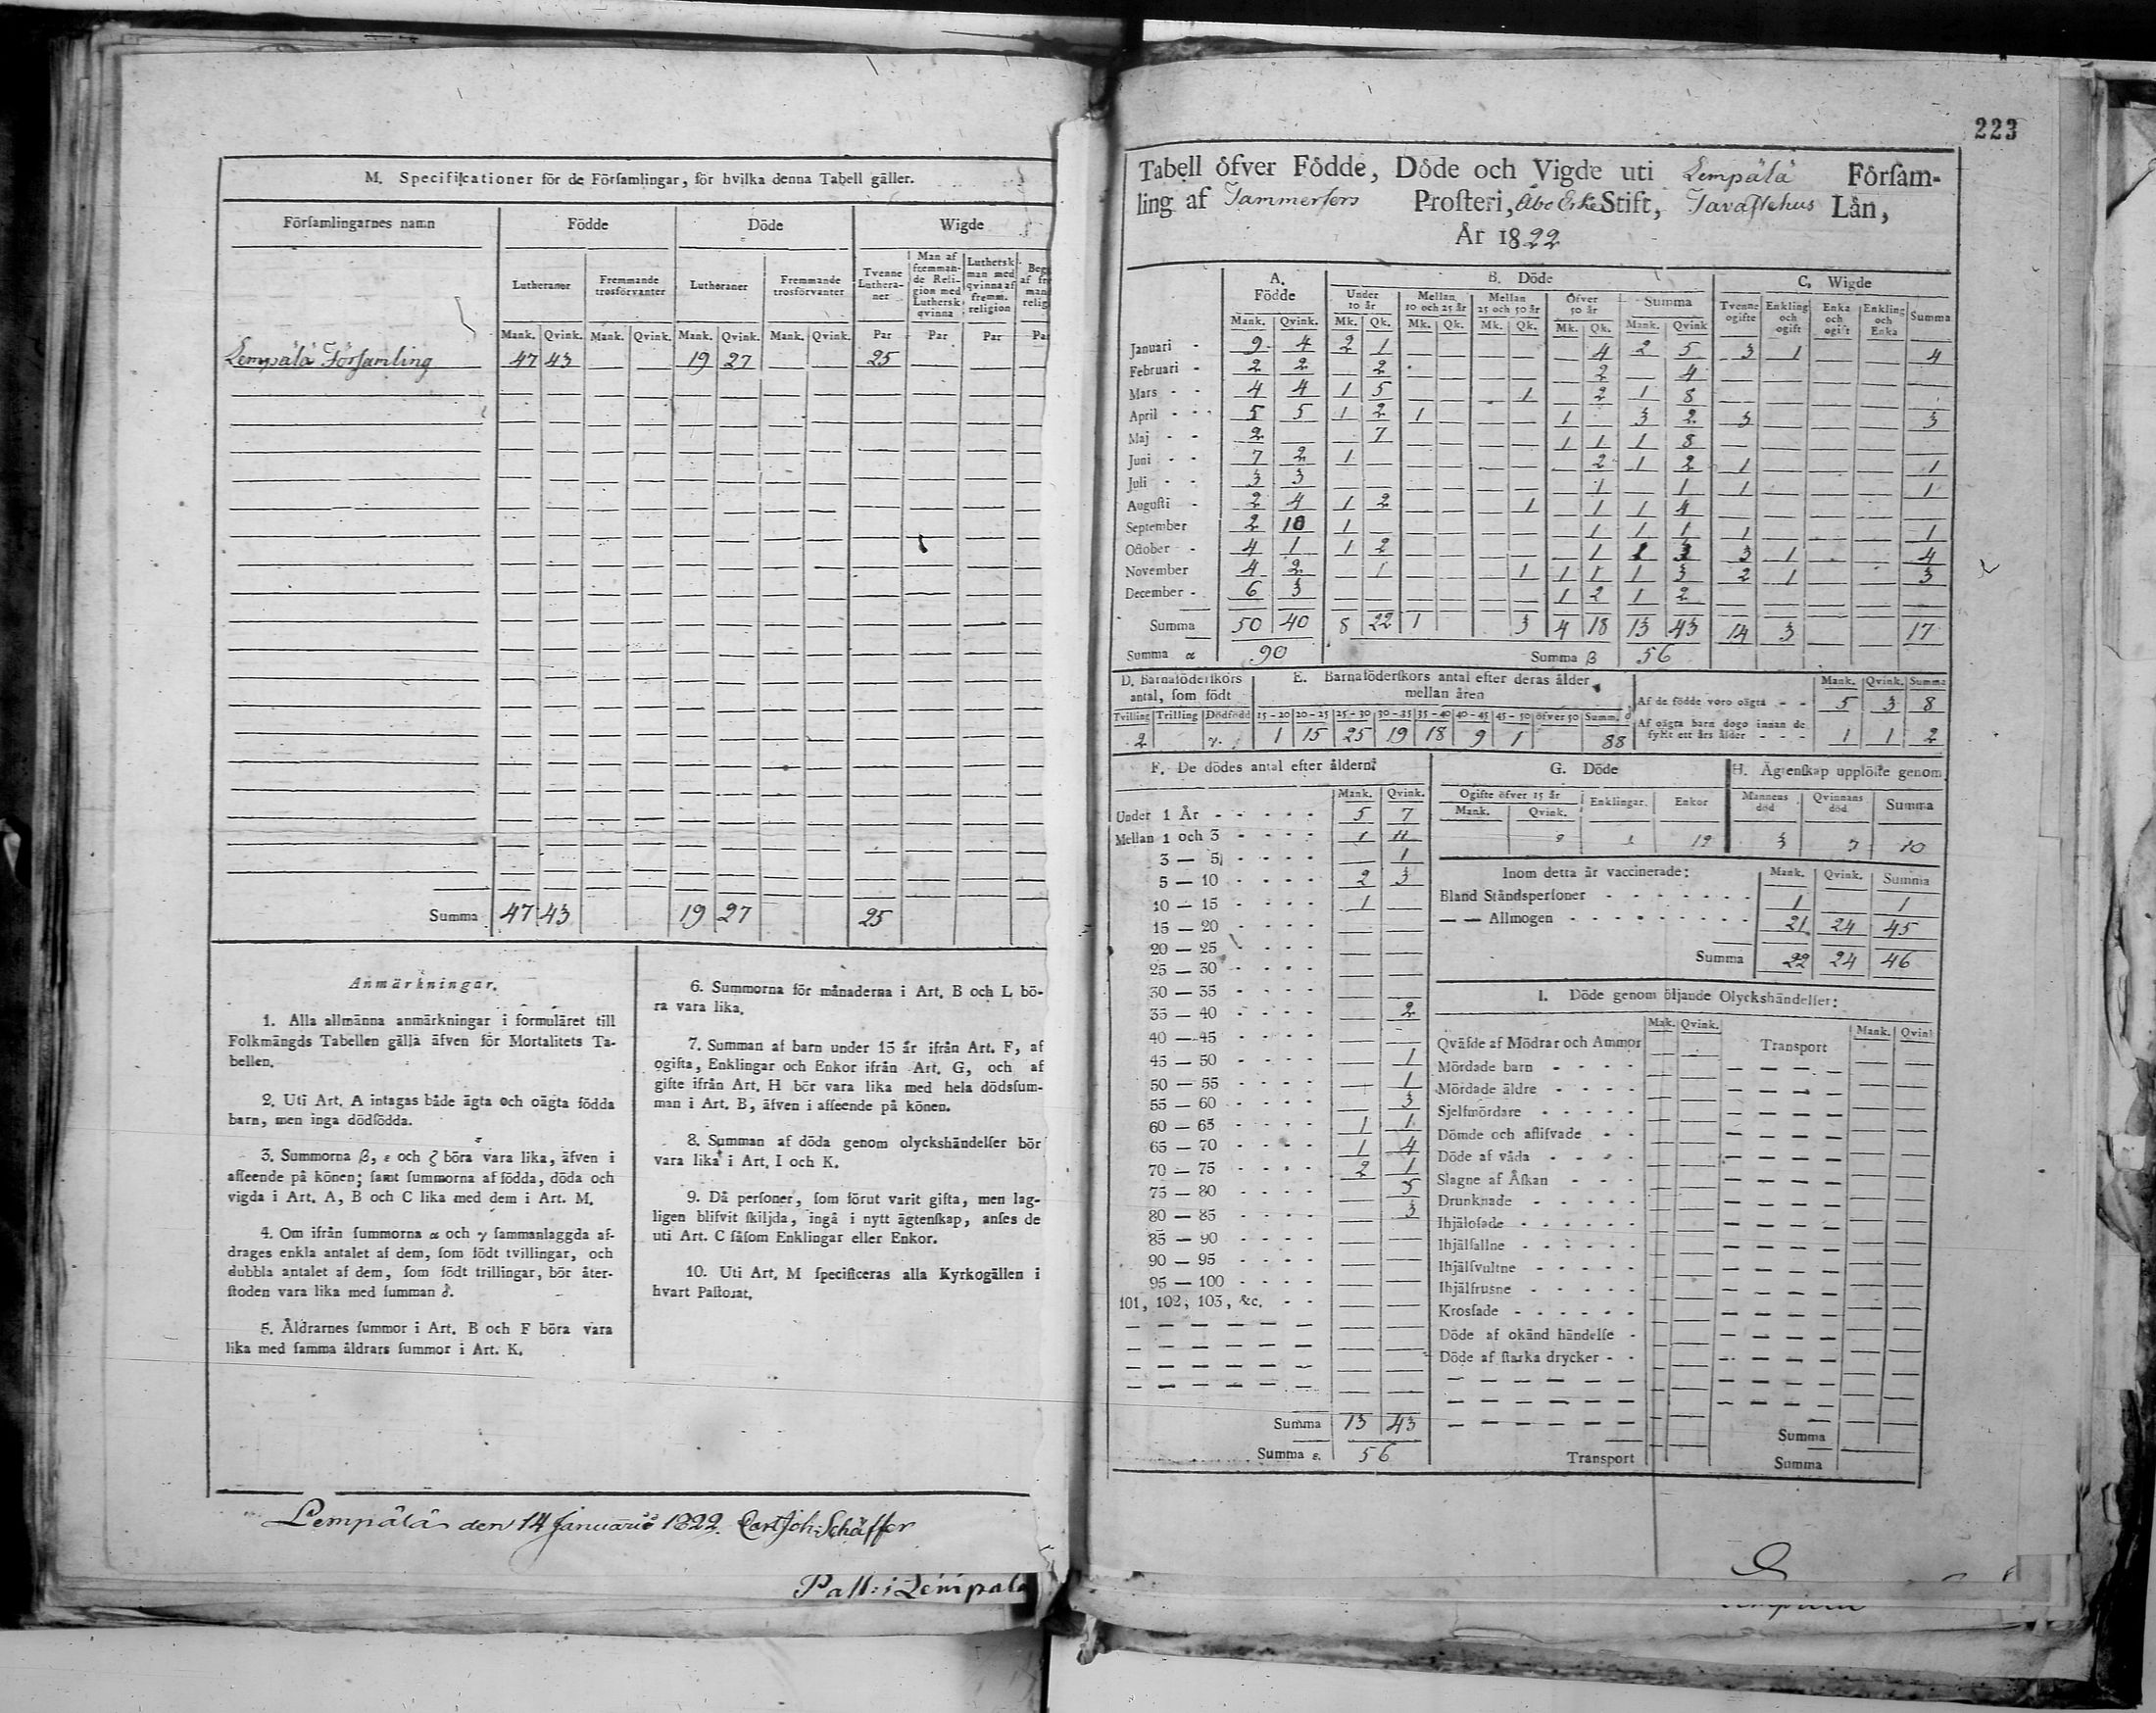 M. Specificationer för de Församlingar, för hvilka denna Tabell gäller.
Församlingarnes namn | Födde | Döde | Wigde
Lutheraner | Fremmande trosförvanter | Lutheraner | Fremmande trosförvanter | Tvenne Lutheraner | Man af fremmande Religion med Luthersk qvinna | Luthersk man med qvinna af fremm. religion
Mank. Qvink. Mank. Qvink. Mank. Qvink. Mank. Qvink. Par Par Par
Lempälä Församling 47 43 — — 19 27 — — 25 — — —
Summa 47 43 19 27 25
Anmärkningar.
1. Alla allmänna anmärkningar i formuläret till
Folkmängds Tabellen gälla äfven för Mortalitets Ta-
bellen.
2. Uti Art. A intagas både ägta och oägta födda
barn, men inga dödfödda.
3. Summorna β, ε och ζ böra vara lika, äfven i
afseende på könen; samt summorna af födda, döda och
vigda i Art. A, B och C lika med dem i Art. M.
4. Om ifrån summorna α och γ sammanlaggda af-
drages enkla antalet af dem, som födt tvillingar, och
dubbla antalet af dem, som födt trillingar, bör åter-
stoden vara lika med summan δ.
5. Åldrarnes summor i Art. B och F böra vara
lika med samma åldrars summor i Art. K.
6. Summorna för månaderna i Art. B och L bö-
ra vara lika.
7. Summan af barn under 15 år ifrån Art. F, af
ogifta, Enklingar och Enkor ifrån Art. G, och af
gifte ifrån Art. H bör vara lika med hela dödssum-
man i Art. B, äfven i afseende på könen.
8. Summan af döda genom olyckshändelser bör
vara lika i Art. I och K.
9. Då personer, som förut varit gifta, men lag-
ligen blifvit skiljda, ingå i nytt ägtenskap, anses de
uti Art. C såsom Enklingar eller Enkor.
10. Uti Art. M specificeras alla Kyrkogällen i
hvart Pastorat.
Lempälä den 14 Januarii 1822. Carl Joh: Schäffer
Past: i Lempälä
223
Tabell öfver Födde, Döde och Vigde uti Lempälä Församling
ling af Tammerfors Prosteri, Åbo Erke Stift, Tavastehus Län,
År 1822
A. Födde | B. Döde | C. Wigde
Under 10 år | Mellan 10 och 25 år | Mellan 25 och 50 år | Öfver 50 år | Summa | Tvenne ogifte | Enkling och ogift | Enka och ogift | Enkling och Enka | Summa
Mank. Qvink. Mk. Qk. Mk. Qk. Mk. Qk. Mk. Qk. Mank. Qvink
Januari - 9 4 2 1 — — — — — 4 2 5 3 1 — — 4
Februari - 2 2 — 2 — — — — — 2 — 4 — — — — —
Mars - - 4 4 1 5 — — — 1 — 2 1 8 — — — — —
April - - 5 5 1 2 1 — — — 1 3 2 3 — — — 3
Maj - - 2 — 7 — — — — 1 1 1 8 — — — — —
Juni - - 7 2 1 — — — — — — 2 1 2 1 — — — 1
Juli - - 3 3 — — — — — — — 1 — 1 1 — — — 1
Augusti - 2 4 1 2 — — — 1 — 1 1 4 — — — — —
September 2 10 1 — — — — — — 1 1 1 1 — — — 1
October - 4 1 1 2 — — — — — 1 1 3 3 1 — — 4
November 4 2 — 1 — — — 1 1 1 1 3 2 1 — — 3
December - 6 3 — — — — — — 1 2 1 2 — — — — —
Summa 50 40 8 22 1 3 4 18 13 43 14 3 — — 17
Summa α 90 Summa β 56
D. Barnaföderskors antal, som födt
Tvilling Trilling Dödfödd
2 γ.
E. Barnaföderskors antal efter deras ålder mellan åren
15-20 20-25 25-30 30-35 35-40 40-45 45-50 öfver 50 Summ. δ
1 15 25 19 18 9 1 88
Mank. Qvink. Summa
Af de födde voro oägta - - 5 3 8
Af oägta barn dogo innan de fyllt ett års ålder - - - 1 1 2
F. De dödes antal efter åldern:
Mank. Qvink.
Under 1 År 5 7
Mellan 1 och 3 1 11
3 — 5 — 1
5 — 10 2 3
10 — 15 1 —
15 — 20 — —
20 — 25 — —
25 — 30 — —
30 — 35 — —
35 — 40 — 2
40 — 45 — —
45 — 50 — 1
50 — 55 — 1
55 — 60 — 3
60 — 65 1 1
65 — 70 1 4
70 — 75 2 1
75 — 80 5
80 — 85 — 3
85 — 90 — —
90 — 95 — —
95 — 100 — —
101, 102, 103, &c. — —
Summa 13 43
Summa ε. 56
G. Döde
Ogifte öfver 15 år | Enklingar. | Enkor
Mank. Qvink.
1 12
H. Ägtenskap upplöste genom
Mannens död | Qvinnans död | Summa
3 7 10
Inom detta år vaccinerade: Mank. Qvink. Summa
Bland Ståndspersoner 1 1
— — Allmogen 21 24 45
Summa 22 24 46
I. Döde genom följande Olyckshändelser:
Mak. Qvink. Mank. Qvink
Qväfde af Mödrar och Ammor Transport
Mördade barn
Mördade äldre
Sjelfmördare
Dömde och aflifvade
Döde af våda
Slagne af Åskan
Drunknade
Ihjälofade
Ihjälfallne
Ihjälsvultne
Ihjälfrusne
Krossade
Döde af okänd händelse
Döde af starka drycker
Summa
Transport Summa